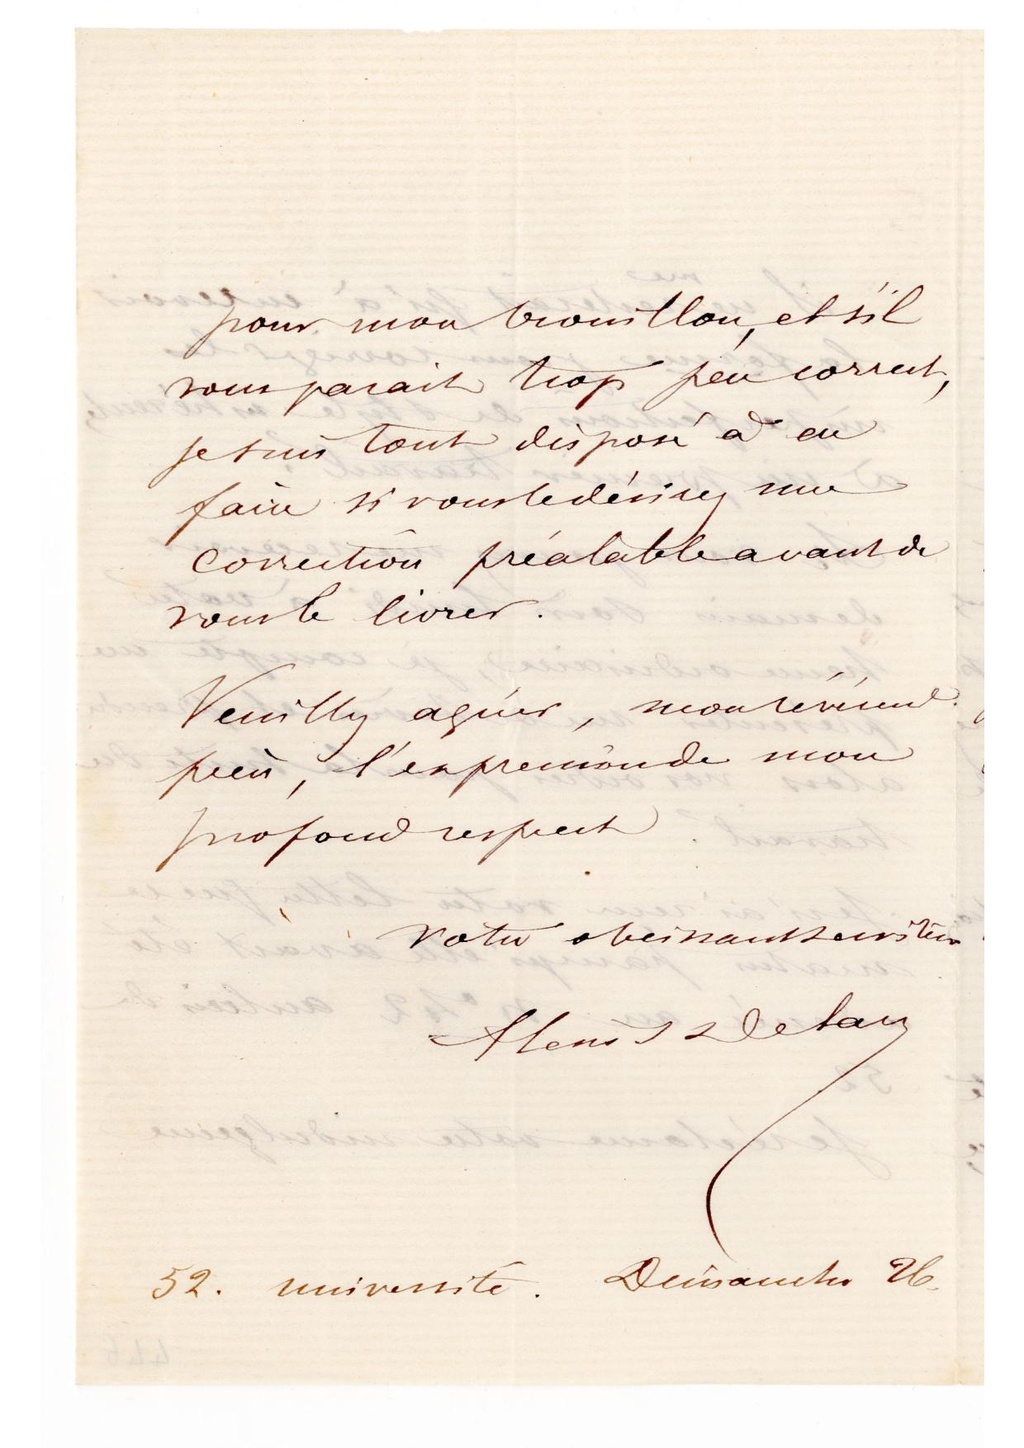 pour mon brouillon, et s'il
vous parait trop peu correct,
je suis tout disposé à en
faire si vous le désirez une
correction préalable avant de
vous le livrer.
Veuillez agréer, mon révérend
père, l'expression de mon
profond respect
Votre obeissant serviteur
Alexis
52. université. Dimanche 26.